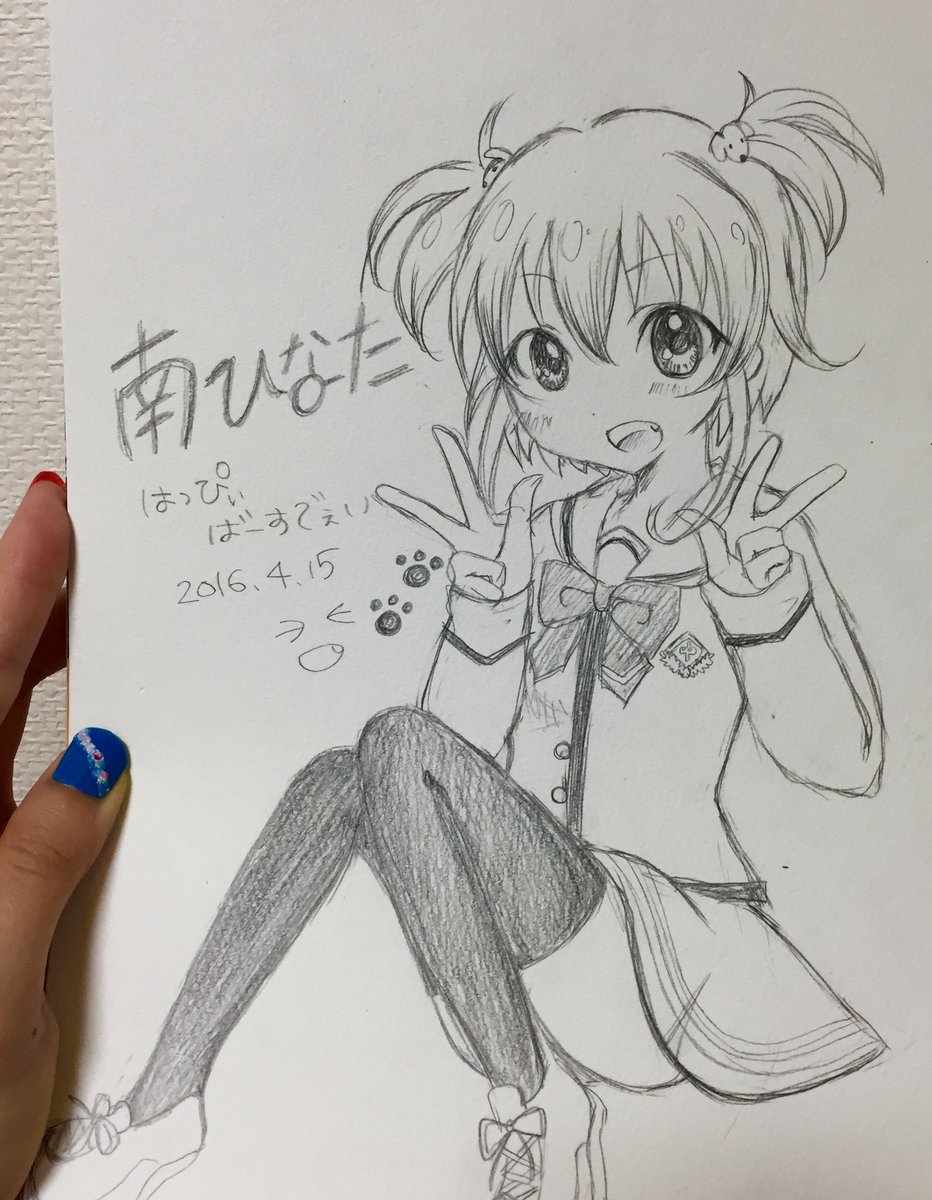 南ひなた
はっぴぃ
ばーすでぇい
2016.4.15